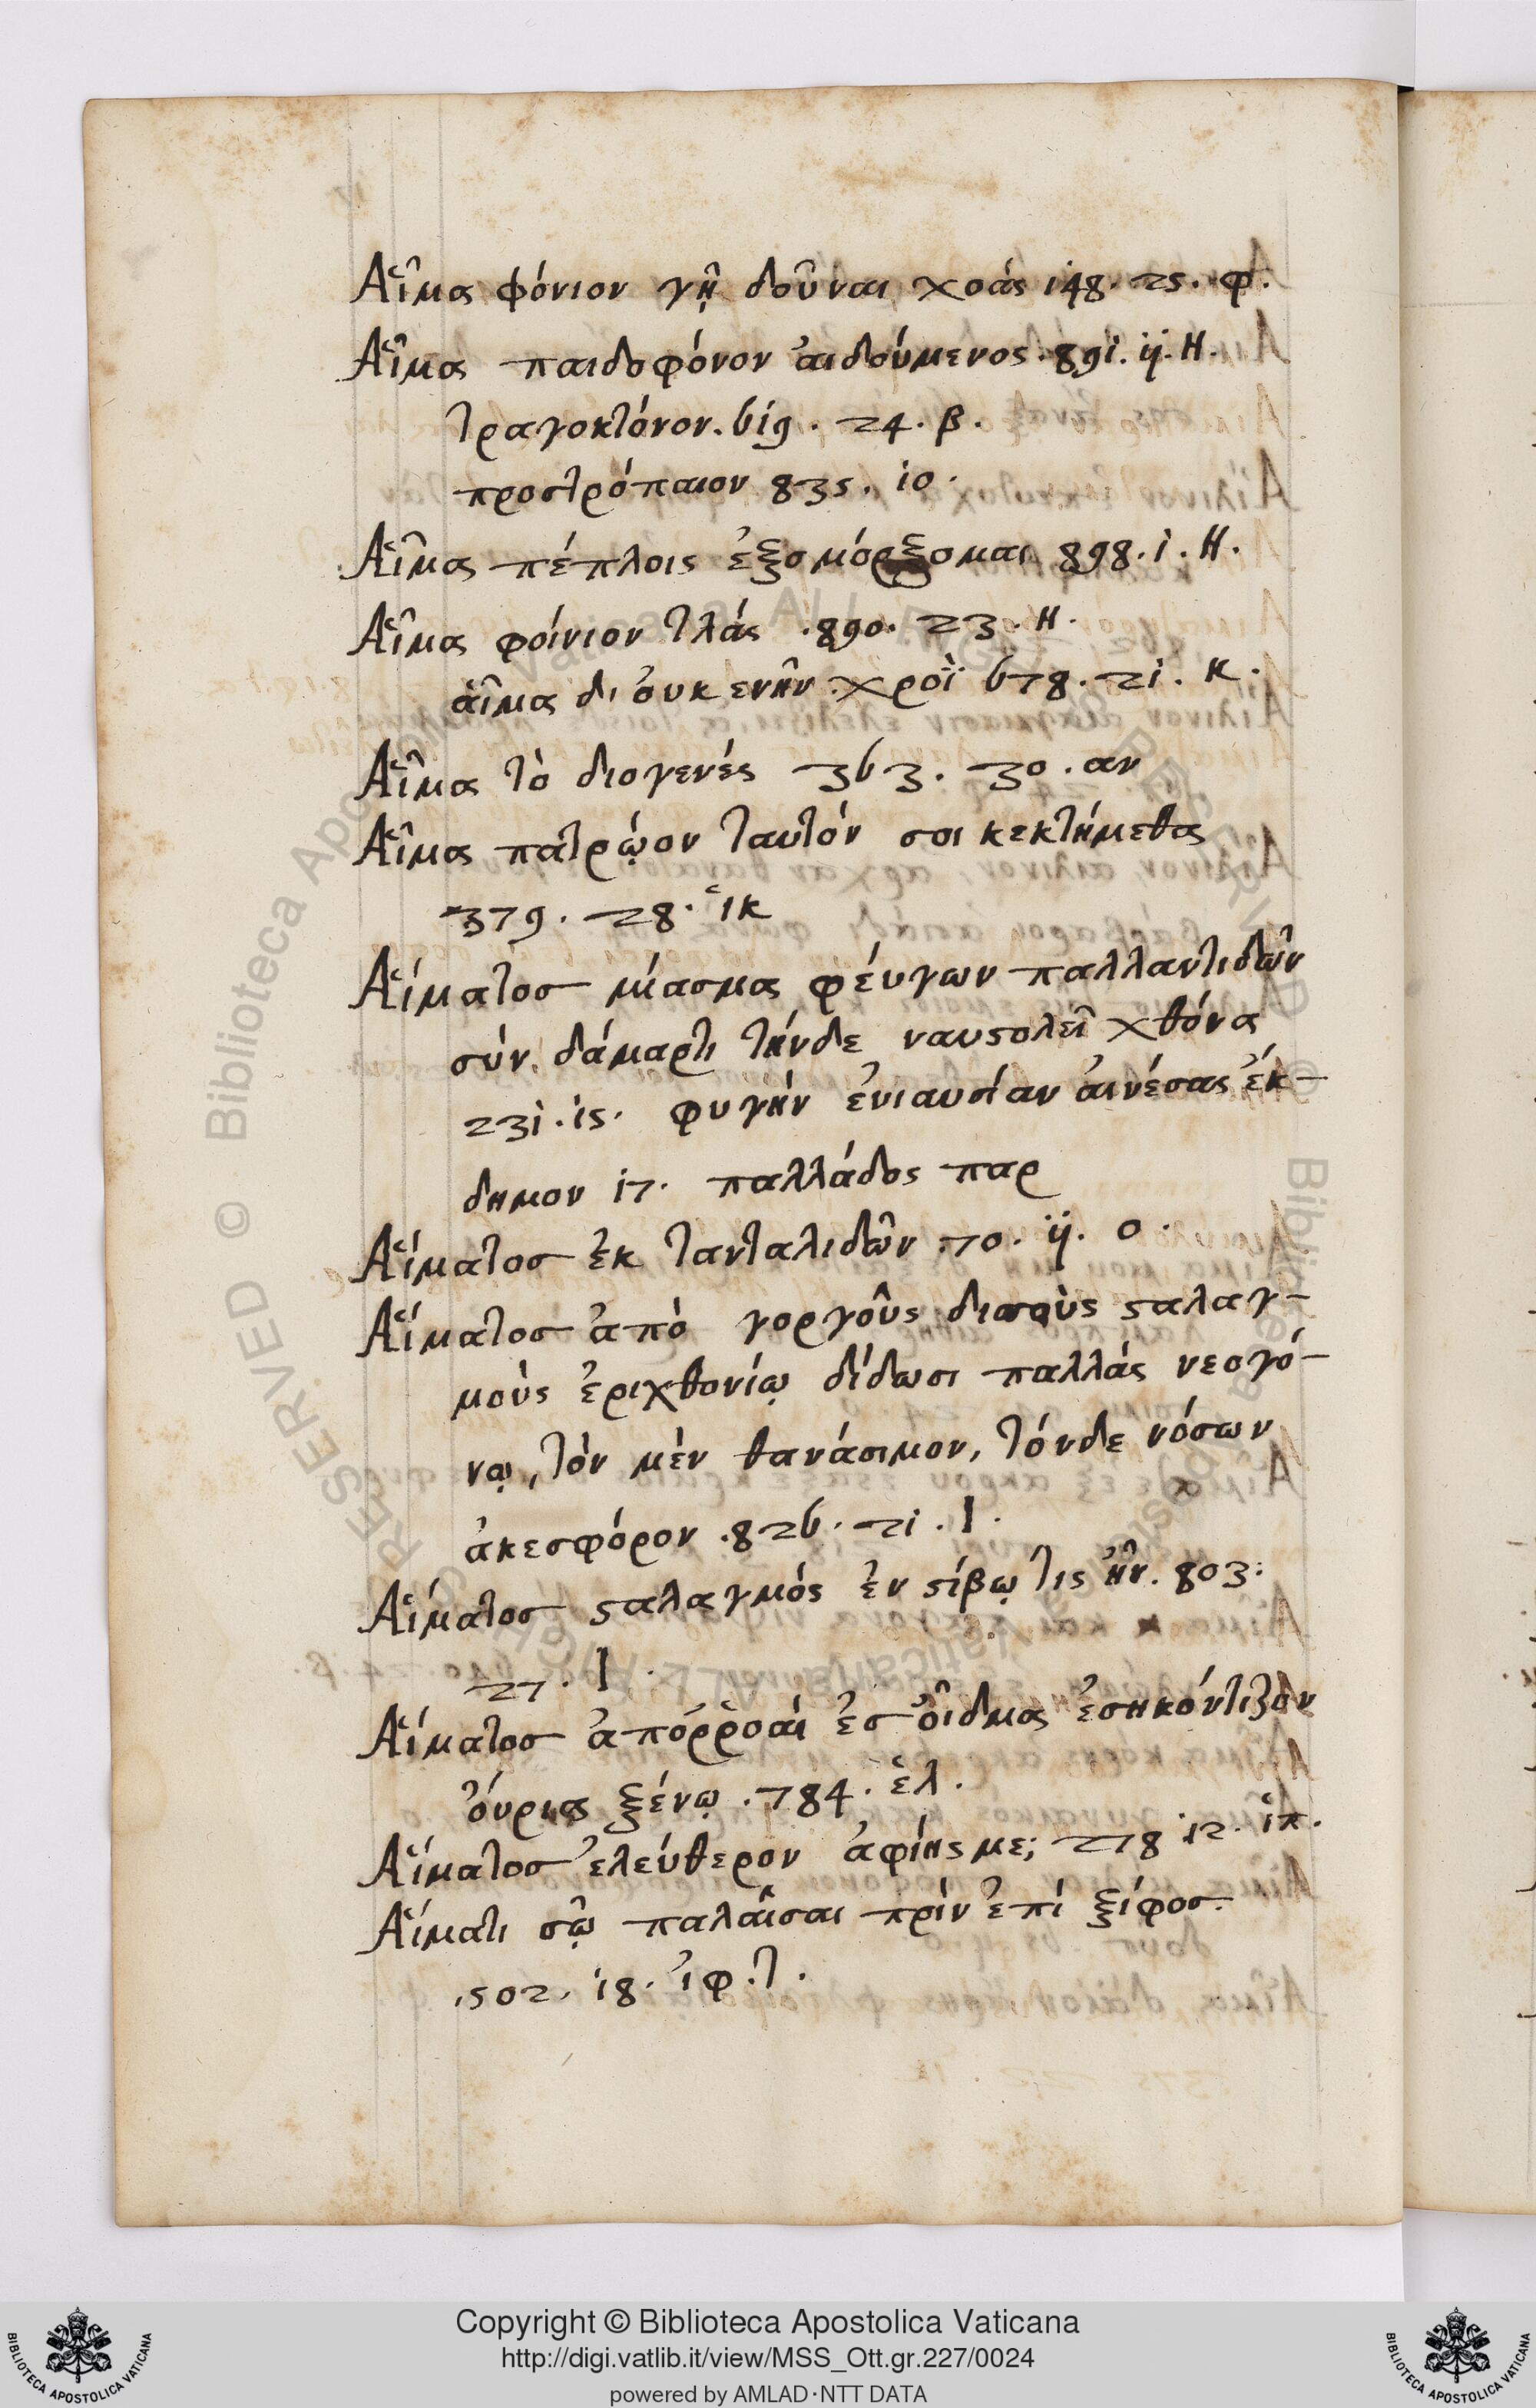 Αἷμα φόνιον γῇ δοῦναι χοάς 148. 25. φ.
Αἷμα παιδοφόνον ἀιδούμενος. 891. ij. Η.
τραγοκτόνον. 619. 24. β.
προστρόπαιον 835. 10.
Αἷμα πέπλοις ἐξομόρξομαι 898. 1. Η.
Αἷμα φοίνιον τλάς. 890. 23. Η.
ἁῖμα δι ὀυκ ενῆν χροΐ 678. 21. κ.
Αἷμα τὸ διογενές 363. 30. αν
Αἷμα πατρῷον ταυτόν σοι κεκτήμεθα
379. 28. ἱκ
Αἵματοσ μίασμα φέυγων παλλαντιδῶν
σύν δάμαρτι τήνδε ναυϛολεῖ χθόνα
231. 15. φυγήν ἐνιαυσίαν ἀινέσας ἔκ-
δημον 17. παλλάδος παρ
Αἵματοσ ἐκ τανταλιδῶν. 70. ij. ο.
Αἵματοσ ἀπὸ γοργοῦς δισσοὺς ϛαλαγ-
μοὺς ἐριχθονίῳ δίδωσι παλλάς νεογό-
νῳ, τὸν μὲν θανάσιμον, τόνδε νόσων
ἀκεσφόρον. 826. 21. Ι.
Αἵματοσ ϛαλαγμός ἐν ϛίβῳ τις ἦν. 803:
27. Ι.
Αἵματοσ ἀπόῤῥοαί ἐσ ὀῖδμα ἐσηκόντιζον
ὀύρια ξένῳ. 784. ἑλ.
Αἵματοσ ἐλεύθερον ἀφίης με; 278 12. ἱπ.
Αἵματι σῷ παλᾶισαι πρίν ἐπί ξίφοσ.
502. 18. ἰφ. τ.
Copyright © Biblioteca Apostolica Vaticana
http://digi.vatlib.it/view/MSS_Ott.gr.227/0024
powered by AMLAD·NTT DATA